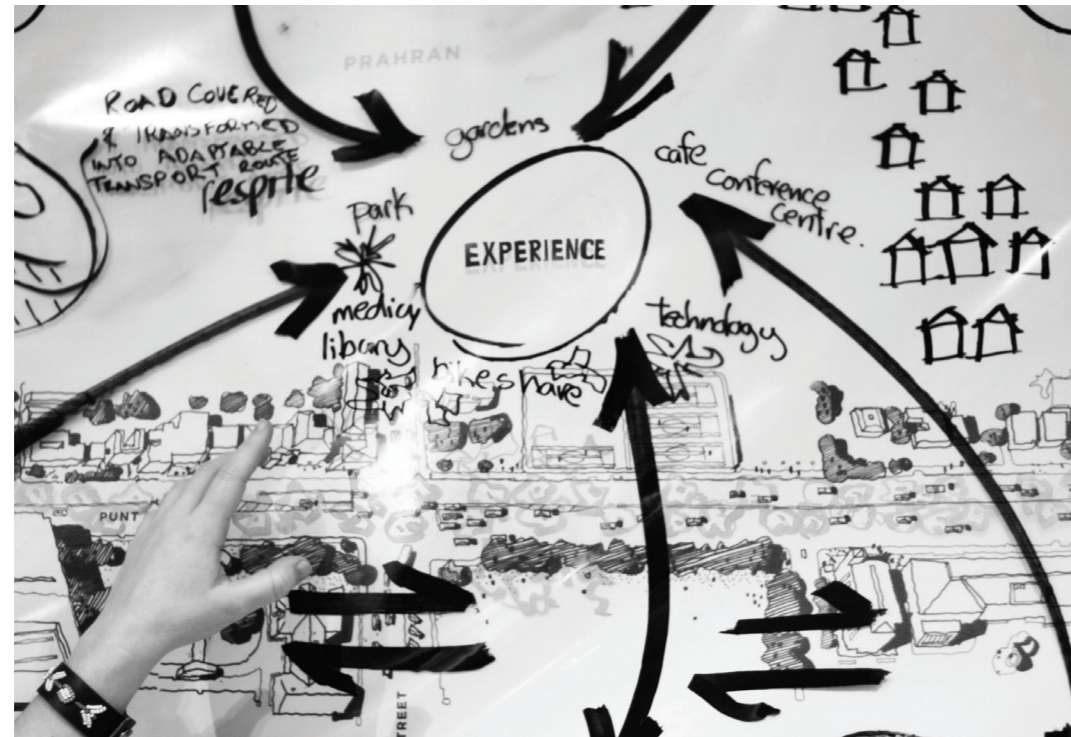 PRAHRAN
ROAD COVERED
& TRANSFORMED
INTO ADAPTABLE
TRANSPORT ROUTE
respite
gardens
cafe
conference
centre.
park
EXPERIENCE
medicy
library
technology
bike share
PUNT
TREET